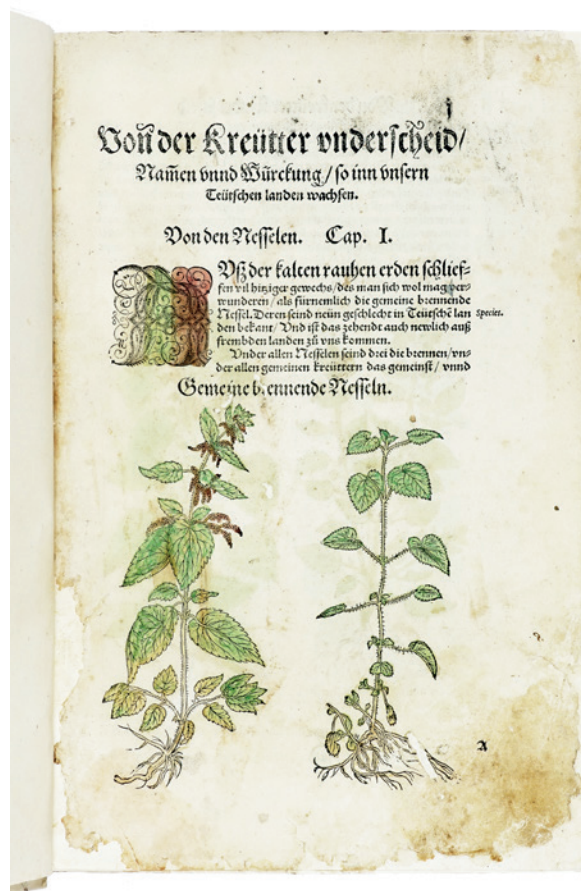 j
Von̄ der Kreütter vnderscheid/
Nam̄en vnnd Würckung/ so inn vnsern
Teütschen landen wachsen.
Von den Nesselen. Cap. I.
VSz der kalten rauhen erden schlief-
fen vil hitziger gewechs/ des man sich wol mag ver-
wunderen/ als fürnemlich die gemeine brennende
Nessel. Deren seind neün geschlecht in Teütschē lan Species.
den bekant/ Vnd ist das zehendt auch newlich auß
frembden landen zů vns kommen.
Vnder allen Nesselen seind drei die brennen/ vn-
der allen gemeinen kreüttern das gemeinst/ vnnd
Gemeine b ennende Nesseln.
A